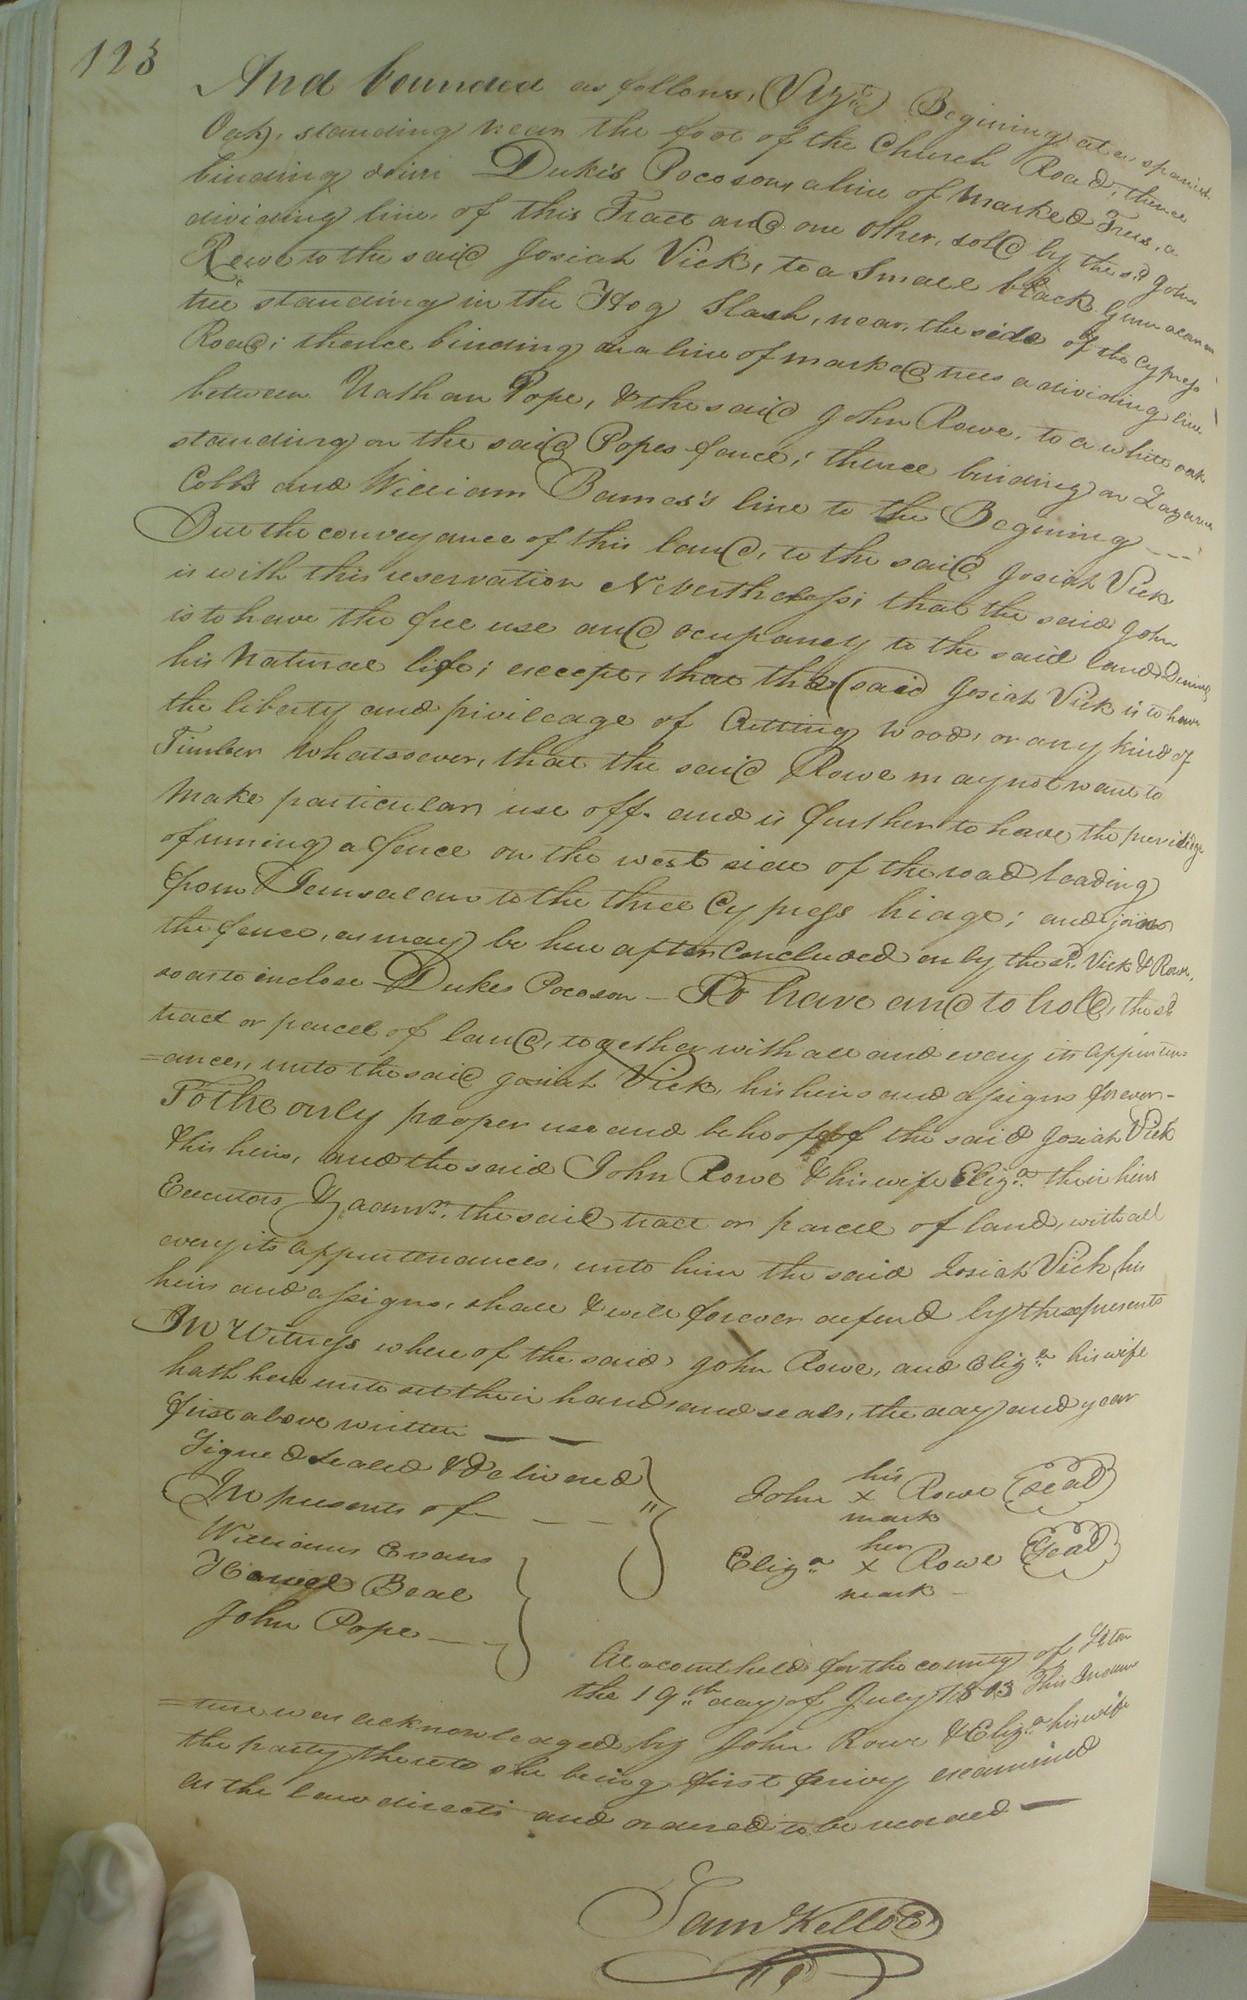 123
And bounded as follows, (Viz.) Begining at a spanish
Oak, standing near the foot of the Church Road, thence
binding down Duke's Pocoson, a line of marked Trees, a
dividing line of this Tract and one other, sold by the sd. John
Rowe to the said Josiah Vick, to a small black gum
tree standing in the Hog Slash, near the side of the Cypress
Road; thence binding on a line of marked trees a dividing line
between Nathan Pope, & the said John Rowe, to a white oak
standing on the said Popes fence; thence binding on
Cobb's and William Barnes's line to the Begining ---
But the conveyance of this land, to the said Josiah Vick
is with this reservation Nevertheless; that the said John
is to have the free use and ocupancy to the said land During
his natural life; except, that the said Josiah Vick is to have
the liberty and pivileage of Cutting wood, or any kind of
Timber whatsoever, that the said Rowe may not want to
make particular use off. and is further to have the previlidge
of runing a fence on the west side of the road leading
from Jerusalem to the three Cypress briage; and
the fence, as may be here after Concluded on by the sd. Vick & Rowe,
so as to inclose Dukes Pocoson - To have and to hold, the sd
tract or parcel of land, together with all and every its appurten=
=ances, unto the said Josiah Vick, his heirs and assigns forever-
To the only proper use and behoof of the said Josiah Vick
& his heirs, and the said John Rowe & his wife Eliza. their heirs
Executors & admrs. the said tract or parcel of land, with all
every its appurtenances, unto him the said Josiah Vick, his
heirs and assigns, shall & will forever defend by these presents
In Witness where of the said John Rowe, and Eliza. his wife
hath here unto set their hands and seals, the day and year
first above written — —
Signed sealed & Delivered
In presents of - — —
Williams Evans
Beal
John Pope — -
John his x mark Rowe (seal)
Eliza. her x mark Rowe (Seal)
At a court held for the county of
the 19th day of July 1803 This Inden
=ture was acknowledged by John Rowe & Eliza. his wife
the party thereto she being first privy examined
as the law directs and ordered to be recorded —
Sam Kello C